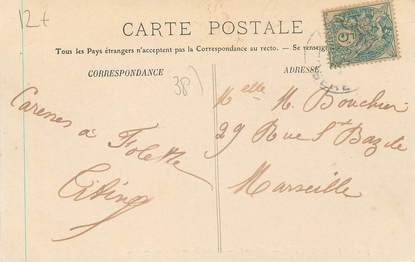 12f
CARTE POSTALE
Tous les Pays étrangers n'acceptent pas la Correspondance au recto. — Se renseign
CORRESPONDANCE
ADRESSE
38)
Caresses à Folette
Melle M. Bouchier
29 Rue St Baz de
Marseille
5